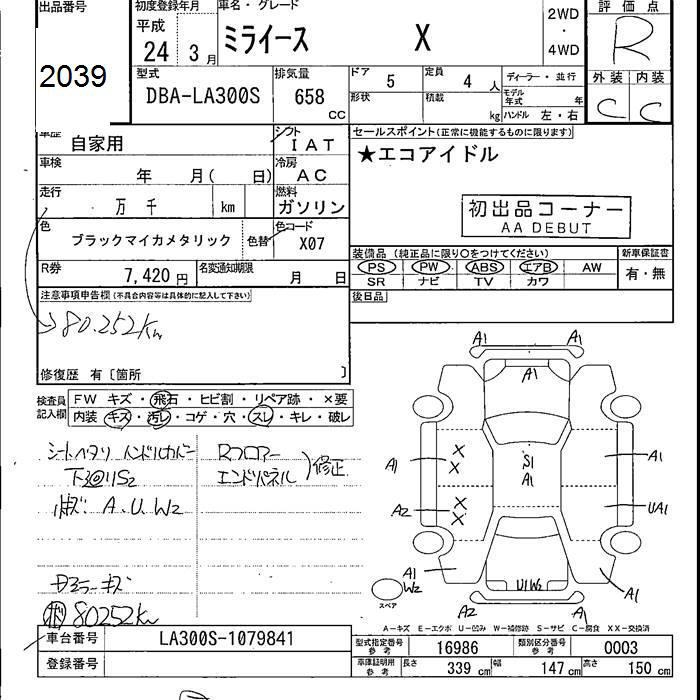 出品番号
2039
初度登録年月
平成
24年 3月
車名・グレード
ミライース X
2WD
・
4WD
評価点
R
外装 内装
C C
型式
DBA-LA300S
排気量
658 CC
ドア 5
定員 4人
形状
積載 kg
ディーラー・並行
モデル年式 年
ハンドル 左・右
車歴 自家用
シフト IAT
車検 年 月( 日)
冷房 AC
走行 万 千 km
燃料 ガソリン
色 ブラックマイカメタリック
色替
色コード X07
R券 7,420円
名変通知期限 月 日
セールスポイント(正常に機能するものに限ります)
★エコアイドル
初出品コーナー
AA DEBUT
装備品 (純正品に限り○をつけてください)
PS PW ABS エアB AW
SR ナビ TV カワ
新車保証書
有・無
後日品
注意事項申告欄(不具合内容等は具体的に記入して下さい)
80.252km
修復歴 有〔箇所 〕
検査員記入欄
FW キズ・飛石・ヒビ割・リペア跡・×要
内装 キズ・汚レ・コゲ・穴・スレ・キレ・破レ
シートヘタリ ハンドルカバー
Rフロアー
エンドパネル
修正
A.U.W2
ドアミラーキズ
80252km
A1 A1
A1
A1 S1 A1 A1
A2 UA1
A1
W2
スペア
U1W2
A1
A2 A1
A-キズ E-エクボ U-凹み W-補修跡 S-サビ C-腐食 XX-交換済
車台番号 LA300S-1079841
登録番号
型式指定番号 参考 16986
類別区分番号 参考 0003
車庫証明用 参考
長さ 339 cm
幅 147 cm
高さ 150 cm